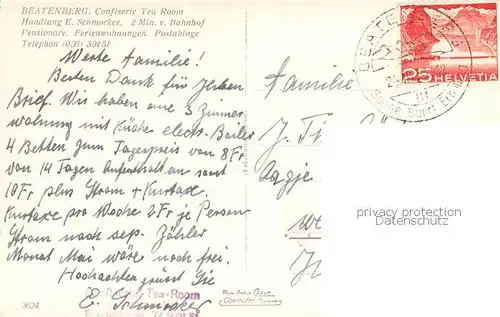 BEATENBERG. Confiserie Tea Room
Handlung E. Schmocker. 2 Min. v. Bahnhof
Pensionäre. Ferienwohnungen. Postablage
Telephon (036) 30151
Werte Familie!
Besten Dank für Ihren
Brief. Wir haben eine 3 Zimmer
wohnung mit Küche electr. Boiler
4 Betten zum Tagespreis von 8 Fr
von 14 Tagen Aufenthalt an sonst
10 Fr, plus Strom + Kurtaxe.
Kurtaxe pro Woche 2 Fr je Person
Strom nach sep. Zähler
Monat Mai wäre noch frei.
Hochachten grüsst Sie
E. Schmocker
Tea-Room
3624
Familie
J.
BEATENBERG
25 HELVETIA
Sonne Sport
privacy protection
watermark